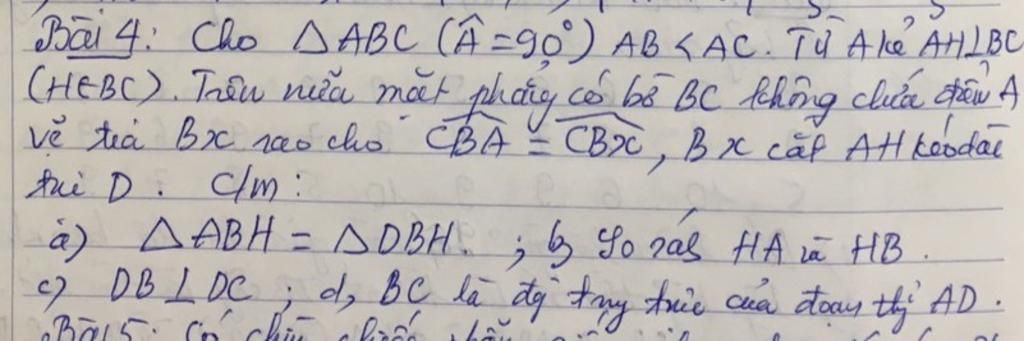 Bài 4: Cho △ABC (Â=90°) AB < AC. Từ A kẻ AH⊥BC
(H∈BC). Trên nửa mặt phẳng có bờ BC không chứa điểm A
vẽ tia Bx sao cho CBA = CBx, Bx cắt AH kéo dài
tại D. C/m:
a) △ABH = △DBH. ; b, So sánh HA và HB.
c) DB⊥DC ; d, BC là đg trung trực của đoạn thg AD.
Bài 5: Có